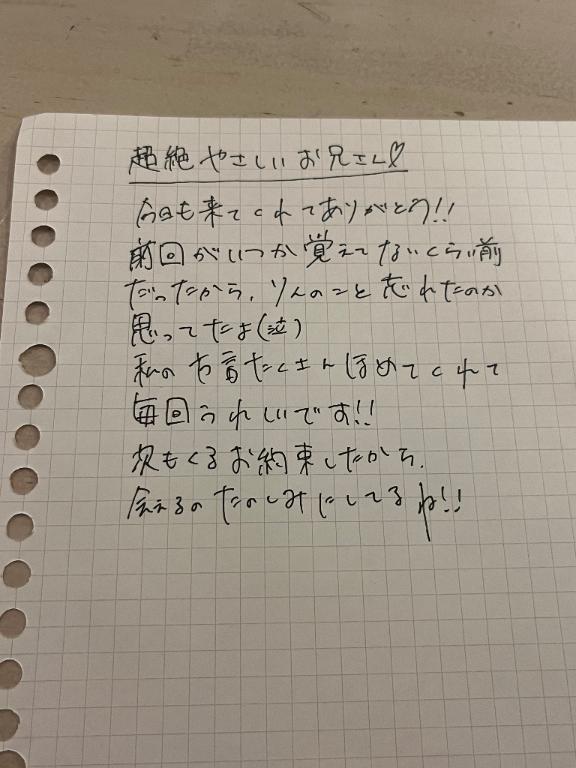 超絶やさしいお兄さん♡
今日も来てくれてありがとう!!
前回がいつか覚えてないくらい前
だったから、りんのこと忘れたのか
思ってたよ(泣)
私のお首たくさんほめてくれて
毎回うれしいです!!
次もくるお約束したから、
会えるのたのしみにしてるね!!